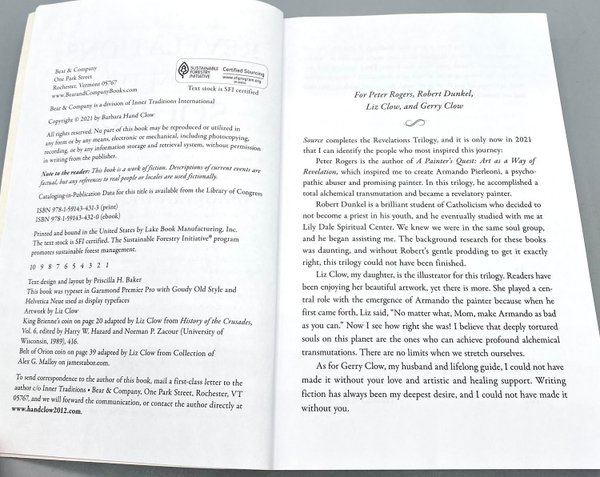 Bear & Company
One Park Street
Rochester, Vermont 05767
www.BearandCompanyBooks.com
SUSTAINABLE
FORESTRY
INITIATIVE
Certified Sourcing
www.sfiprogram.org
Text stock is SFI certified
Bear & Company is a division of Inner Traditions International
Copyright © 2021 by Barbara Hand Clow
All rights reserved. No part of this book may be reproduced or utilized in
any form or by any means, electronic or mechanical, including photocopying,
recording, or by any information storage and retrieval system, without permission
in writing from the publisher.
Note to the reader: This book is a work of fiction. Descriptions of current events are
factual, but any references to real people or locales are used fictionally.
Cataloging-in-Publication Data for this title is available from the Library of Congress
ISBN 978-1-59143-431-3 (print)
ISBN 978-1-59143-432-0 (ebook)
Printed and bound in the United States by Lake Book Manufacturing, Inc.
The text stock is SFI certified. The Sustainable Forestry Initiative® program
promotes sustainable forest management.
10 9 8 7 6 5 4 3 2 1
Text design and layout by Priscilla H. Baker
This book was typeset in Garamond Premier Pro with Goudy Old Style and
Helvetica Neue used as display typefaces
Artwork by Liz Clow
King Brienne's coin on page 20 adapted by Liz Clow from History of the Crusades,
Vol. 6, edited by Harry W. Hazard and Norman P. Zacour (University of
Wisconsin, 1989), 416.
Belt of Orion coin on page 39 adapted by Liz Clow from Collection of
Alex G. Malloy on jamestabor.com.
To send correspondence to the author of this book, mail a first-class letter to the
author c/o Inner Traditions • Bear & Company, One Park Street, Rochester, VT
05767, and we will forward the communication, or contact the author directly at
www.handclow2012.com.
For Peter Rogers, Robert Dunkel,
Liz Clow, and Gerry Clow
Source completes the Revelations Trilogy, and it is only now in 2021
that I can identify the people who most inspired this journey:
Peter Rogers is the author of A Painter's Quest: Art as a Way of
Revelation, which inspired me to create Armando Pierleoni, a psycho-
pathic abuser and promising painter. In this trilogy, he accomplished a
total alchemical transmutation and became a revelatory painter.
Robert Dunkel is a brilliant student of Catholicism who decided to
not become a priest in his youth, and he eventually studied with me at
Lily Dale Spiritual Center. We knew we were in the same soul group,
and he began assisting me. The background research for these books
was daunting, and without Robert's gentle prodding to get it exactly
right, this trilogy could not have been finished.
Liz Clow, my daughter, is the illustrator for this trilogy. Readers have
been enjoying her beautiful artwork, yet there is more. She played a cen-
tral role with the emergence of Armando the painter because when he
first came forth, Liz said, "No matter what, Mom, make Armando as bad
as you can." Now I see how right she was! I believe that deeply tortured
souls on this planet are the ones who can achieve profound alchemical
transmutations. There are no limits when we stretch ourselves.
As for Gerry Clow, my husband and lifelong guide, I could not have
made it without your love and artistic and healing support. Writing
fiction has always been my deepest desire, and I could not have made it
without you.